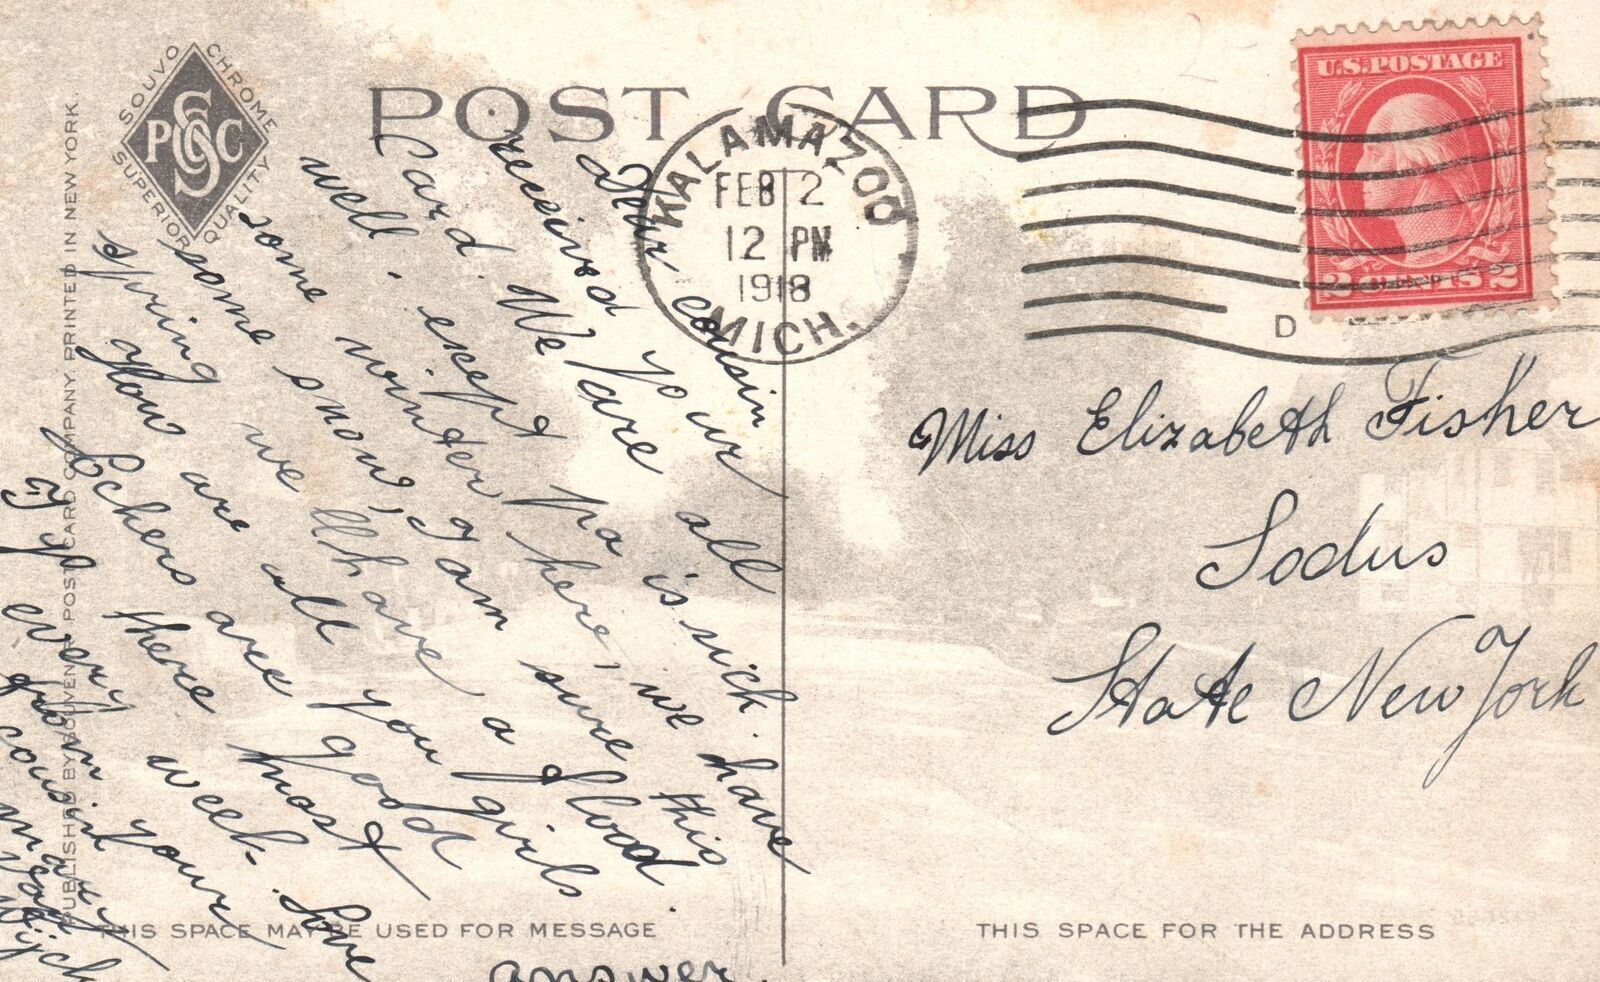 SOUVO CHROME
SUPERIOR QUALITY
PSCC
POST CARD
KALAMAZOO
FEB 2
12 PM
1918
MICH.
D
U.S. POSTAGE
2 CENTS 2
PUBLISHED BY SOUVENIR POST CARD COMPANY PRINTED IN NEW YORK.
Dear cousin
received your
Card. We are all
well. exept pa is sick. have
some winter here, we this
some snow, I am sure
spring we ll have a flood.
How are all you girls
Lokers are good
there most
If every week. Love
from your
cousin
answer.
THIS SPACE MAY BE USED FOR MESSAGE
Miss Elizabeth Fisher
Sodus
State New York
THIS SPACE FOR THE ADDRESS